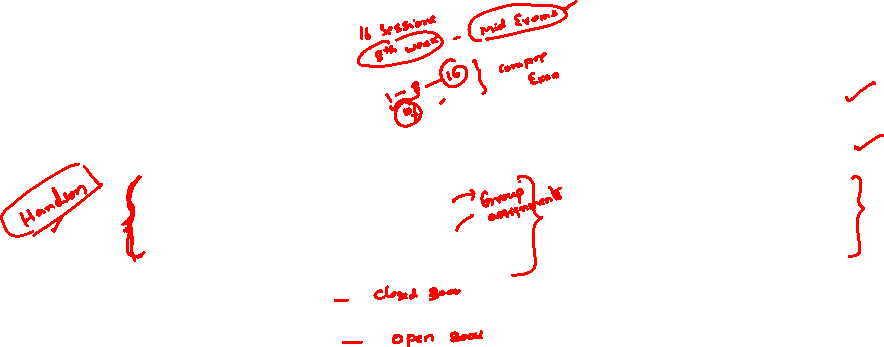 16 Sessions
8th week - Mid Exams
1 - 8 - 16 } Compre Exam
Handson
→ Group
assignments
- Closed Book
- Open Book